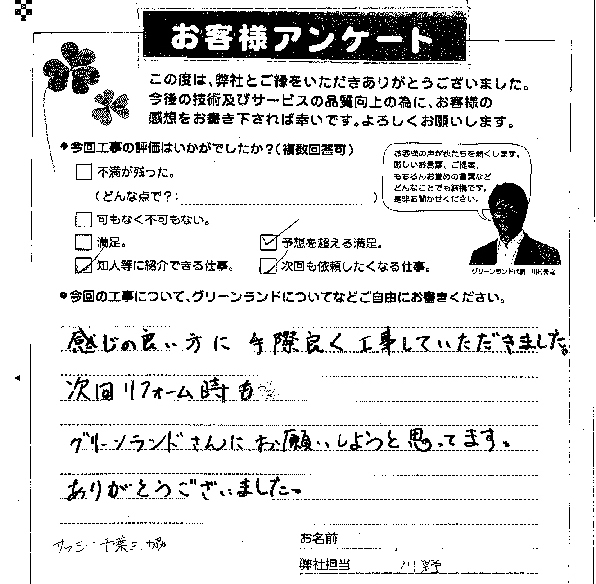 お客様アンケート
この度は、弊社とご縁をいただきありがとうございました。
今後の技術及びサービスの品質向上の為に、お客様の
感想をお書き下されば幸いです。よろしくお願いします。
●今回工事の評価はいかがでしたか?(複数回答可)
不満が残った。
(どんな点で?: )
可もなく不可もない。
満足。
予想を超える満足。
知人等に紹介できる仕事。
次回も依頼したくなる仕事。
お客様の声が私たちを熱くします。
厳しいお言葉、ご提案、
もちろんお褒めの言葉など
どんなことでも結構です。
是非お聞かせください。
グリーンランド代表
●今回の工事について、グリーンランドについてなどご自由にお書きください。
感じの良い方に手際良く工事していただきました。
次回リフォーム時も
グリーンランドさんにお願いしようと思ってます。
ありがとうございました。
お名前
弊社担当 川野